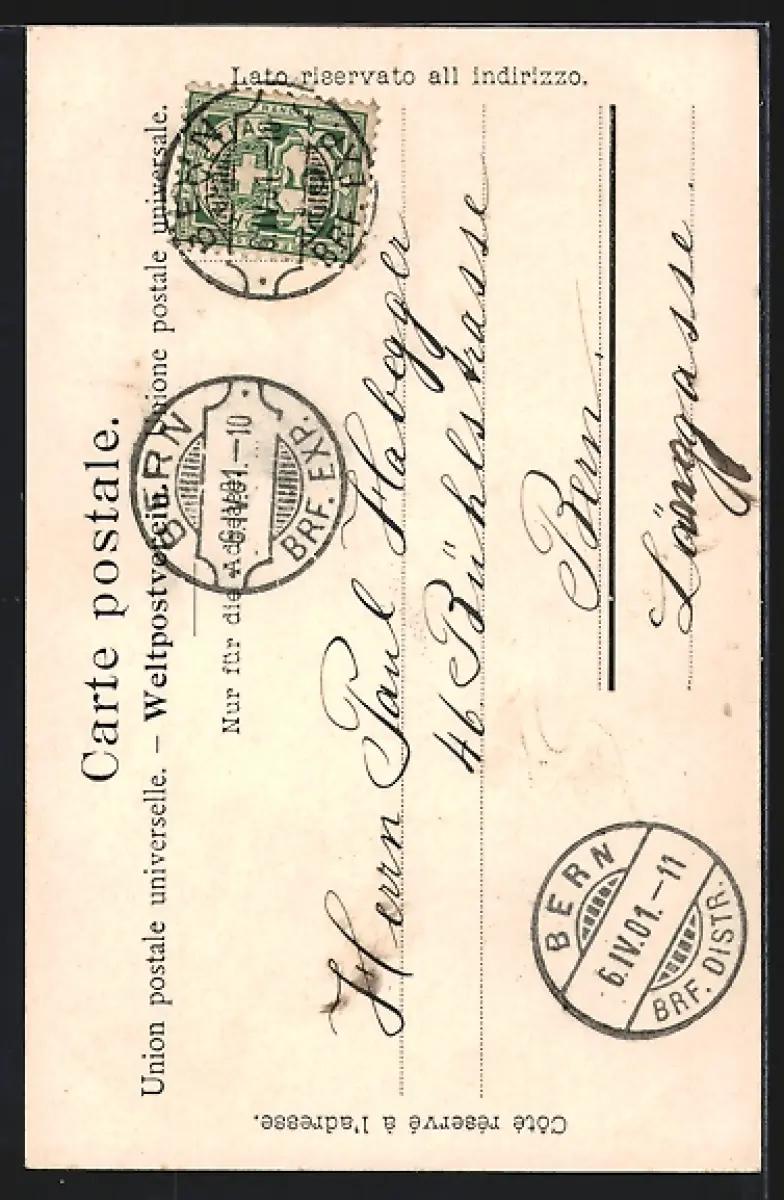 Carte postale.
Union postale universelle. – Weltpostverein. – Unione postale universale.
Nur für die Adresse.
Lato riservato all indirizzo.
Côté réservé à l'adresse.
BERN
6.IV.01.–10
BRF. EXP.
BERN
BRF. EXP.
Herrn Paul Habegger
46 Bühlstrasse
Bern.
Länggasse
BERN
6.IV.01.–11
BRF. DISTR.